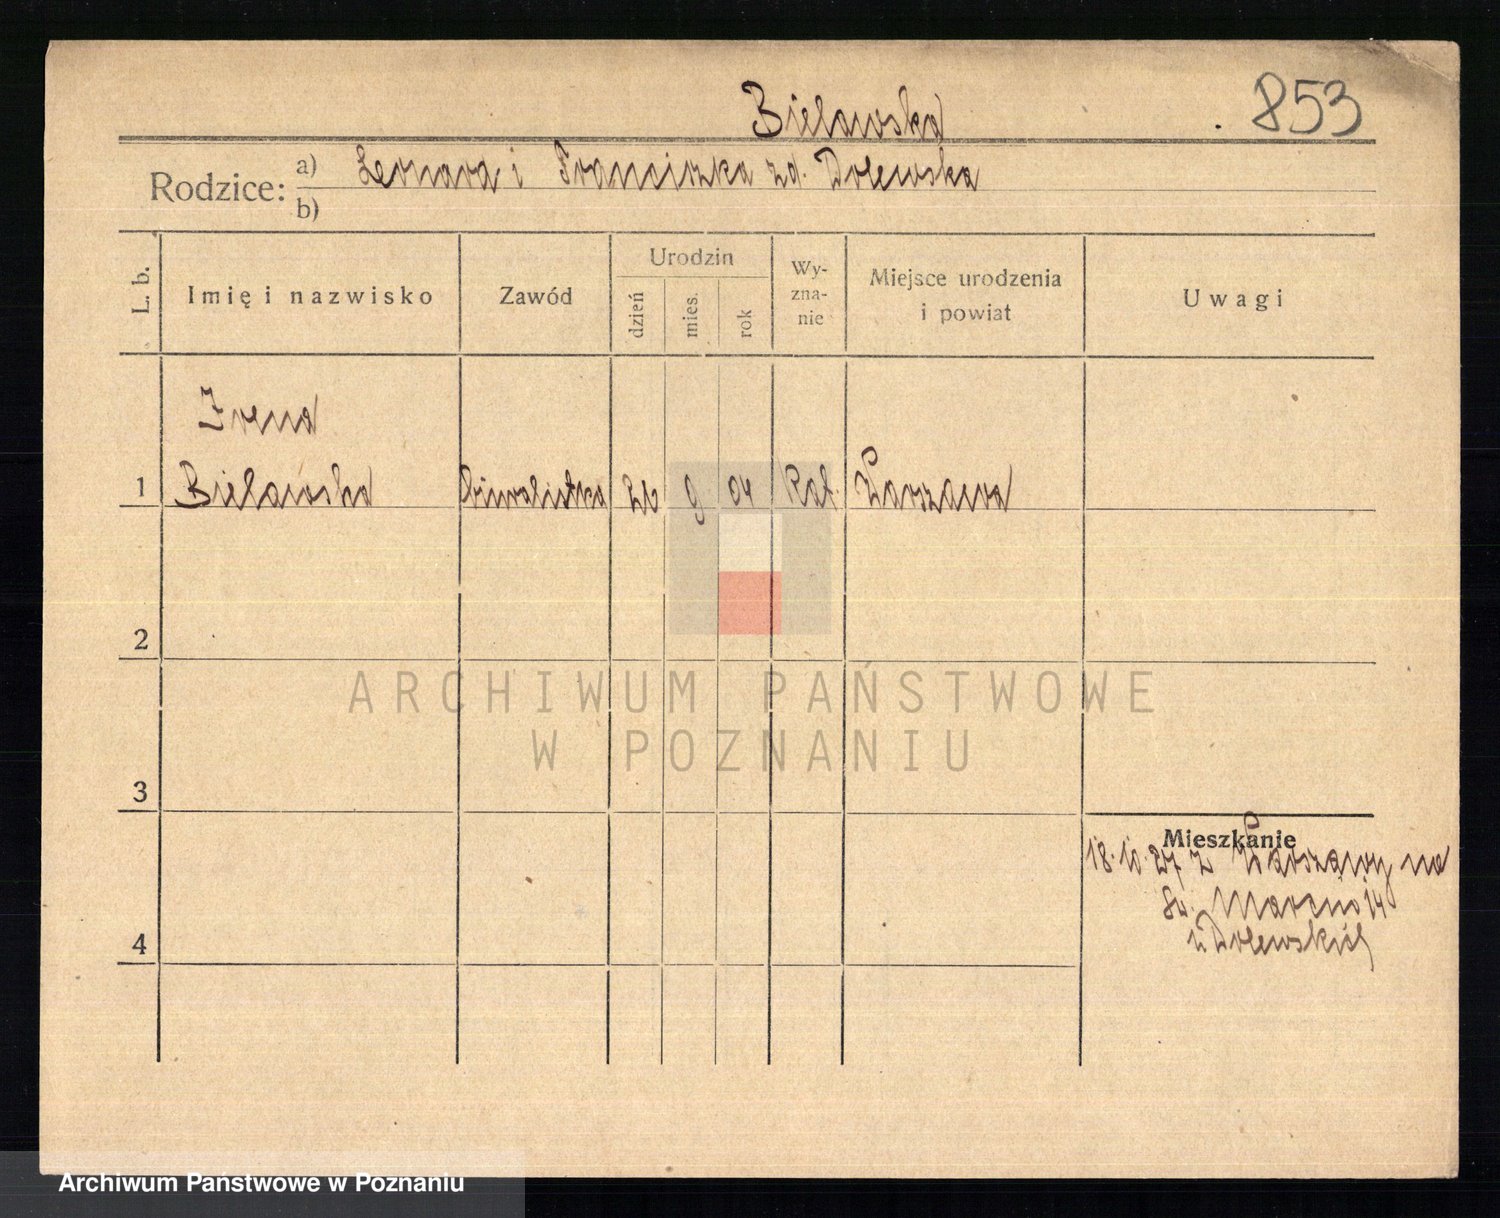 Bielawska
853
Rodzice:
a) Leonard i Franciszka zd. Dolewska
b)
L. b.
Imię i nazwisko
Zawód
Urodzin
dzień
mies.
rok
Wy-
zna-
nie
Miejsce urodzenia
i powiat
Uwagi
Irena
1 Bielawska 26 9 04 Kat. Warszawa
2
3
4
Mieszkanie
18.10.27 z Warszawy na
Św. Marcin 14
u Dolewskich
ARCHIWUM PAŃSTWOWE
W POZNANIU
Archiwum Państwowe w Poznaniu